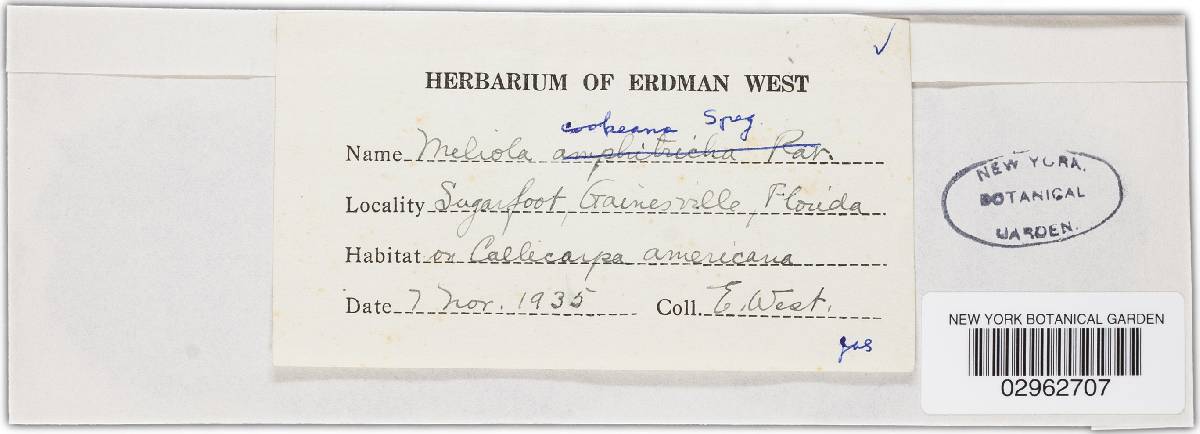 ✓
HERBARIUM OF ERDMAN WEST
cookeana Speg.
Name Meliola amphitricha Rav.
Locality Sugarfoot, Gainesville, Florida
Habitat on Callicarpa americana
Date 7 Nov. 1935 Coll. E. West.
NEW YORK
BOTANICAL
GARDEN.
NEW YORK BOTANICAL GARDEN
02962707